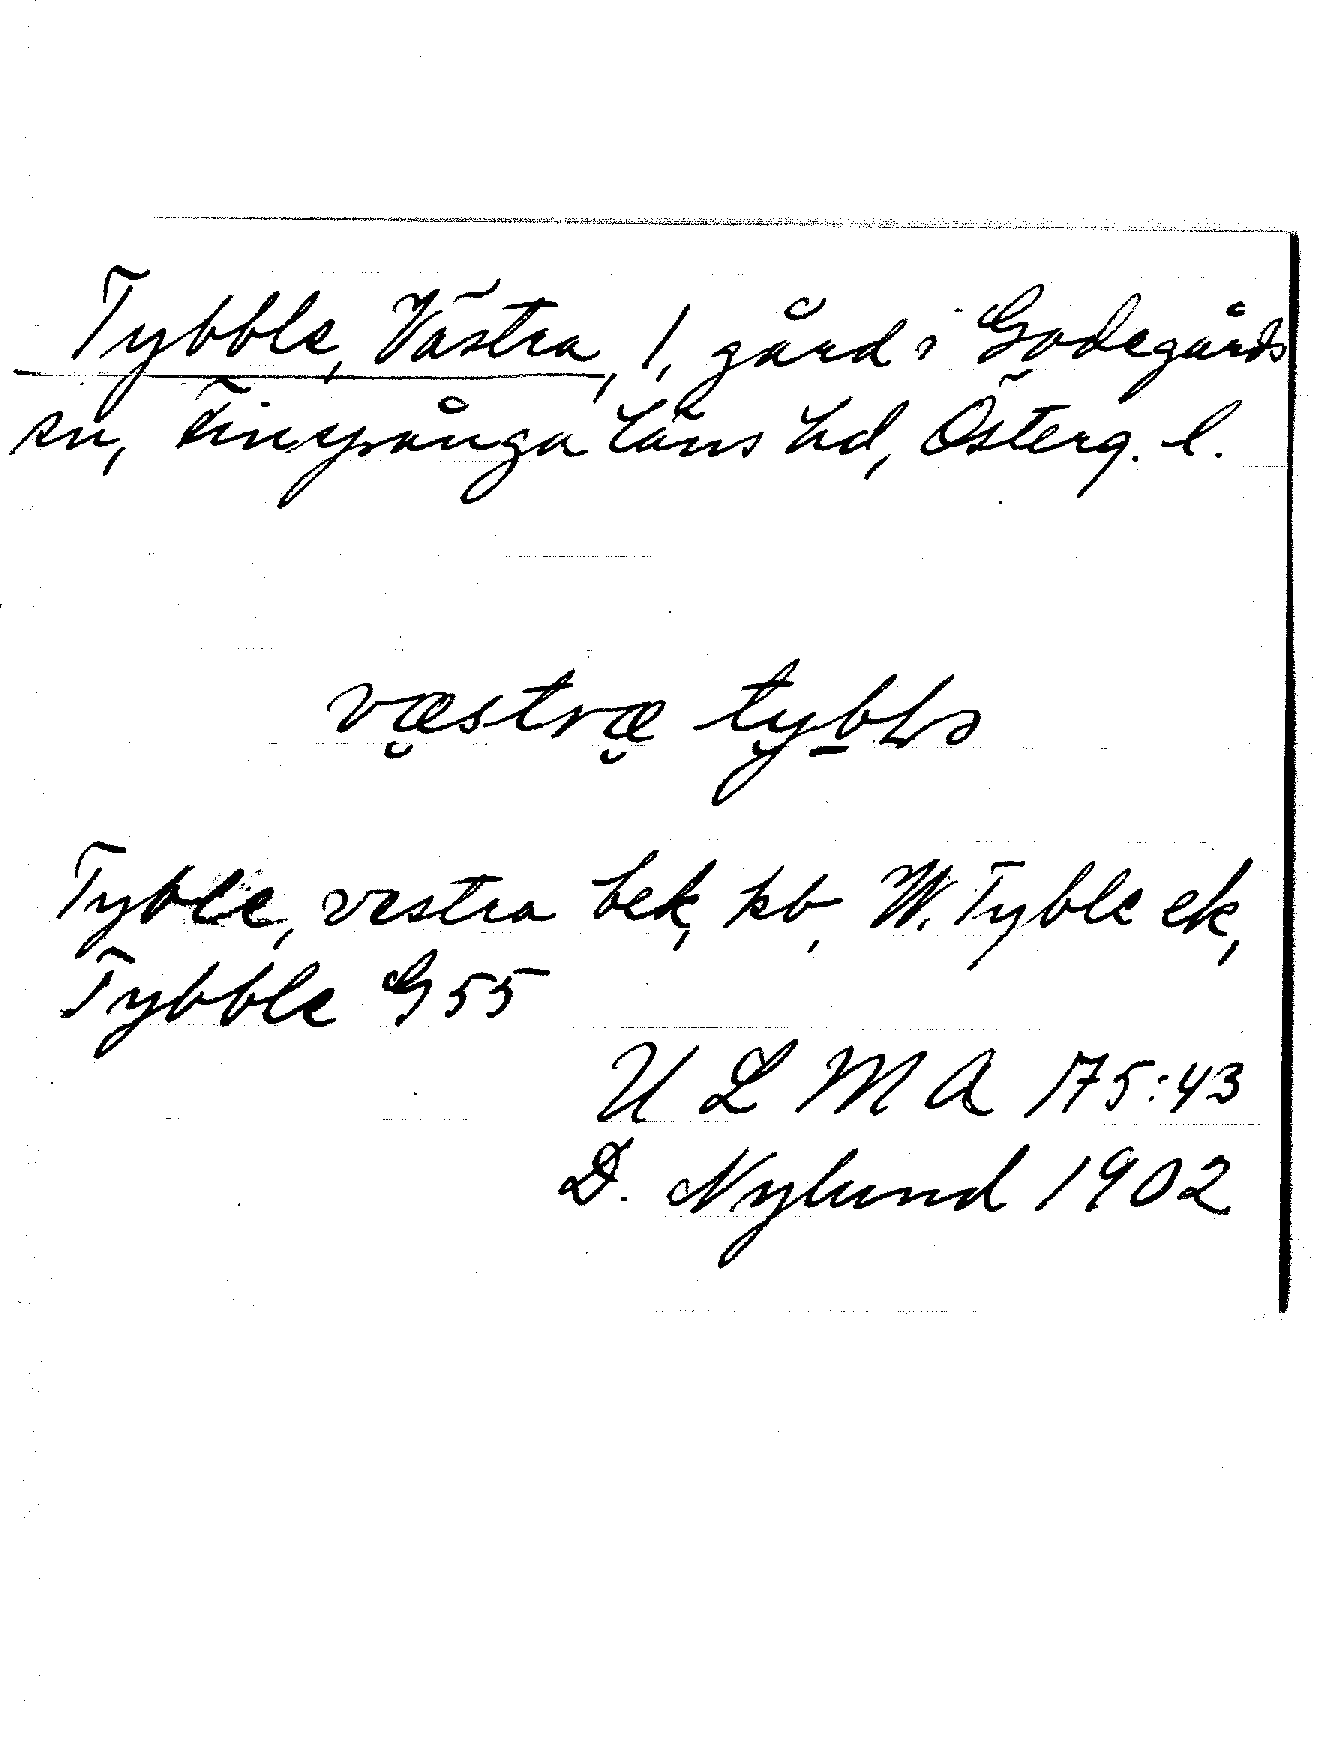 Tybble, Västra, 1, gård i Godegårds
sn, Finspånga läns hd, Österg. l.
væstræ tybbɭə
Tyble, vestra bek, kb, W. Tyble ek,
Tybble G 55
U L M A 175:43
D. Nylund 1902